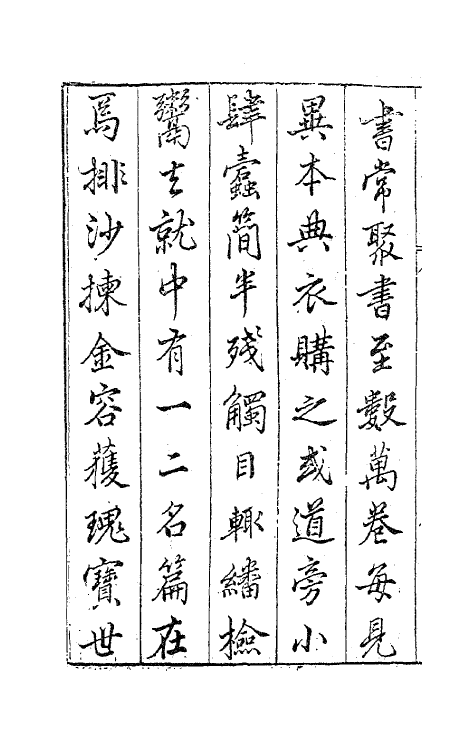 書常聚書至數萬卷每見
異本典衣購之或道旁小
肆蠹簡半殘觸目輙繙檢
鬻去就中有一二名篇在
焉排沙揀金容獲瑰寶世